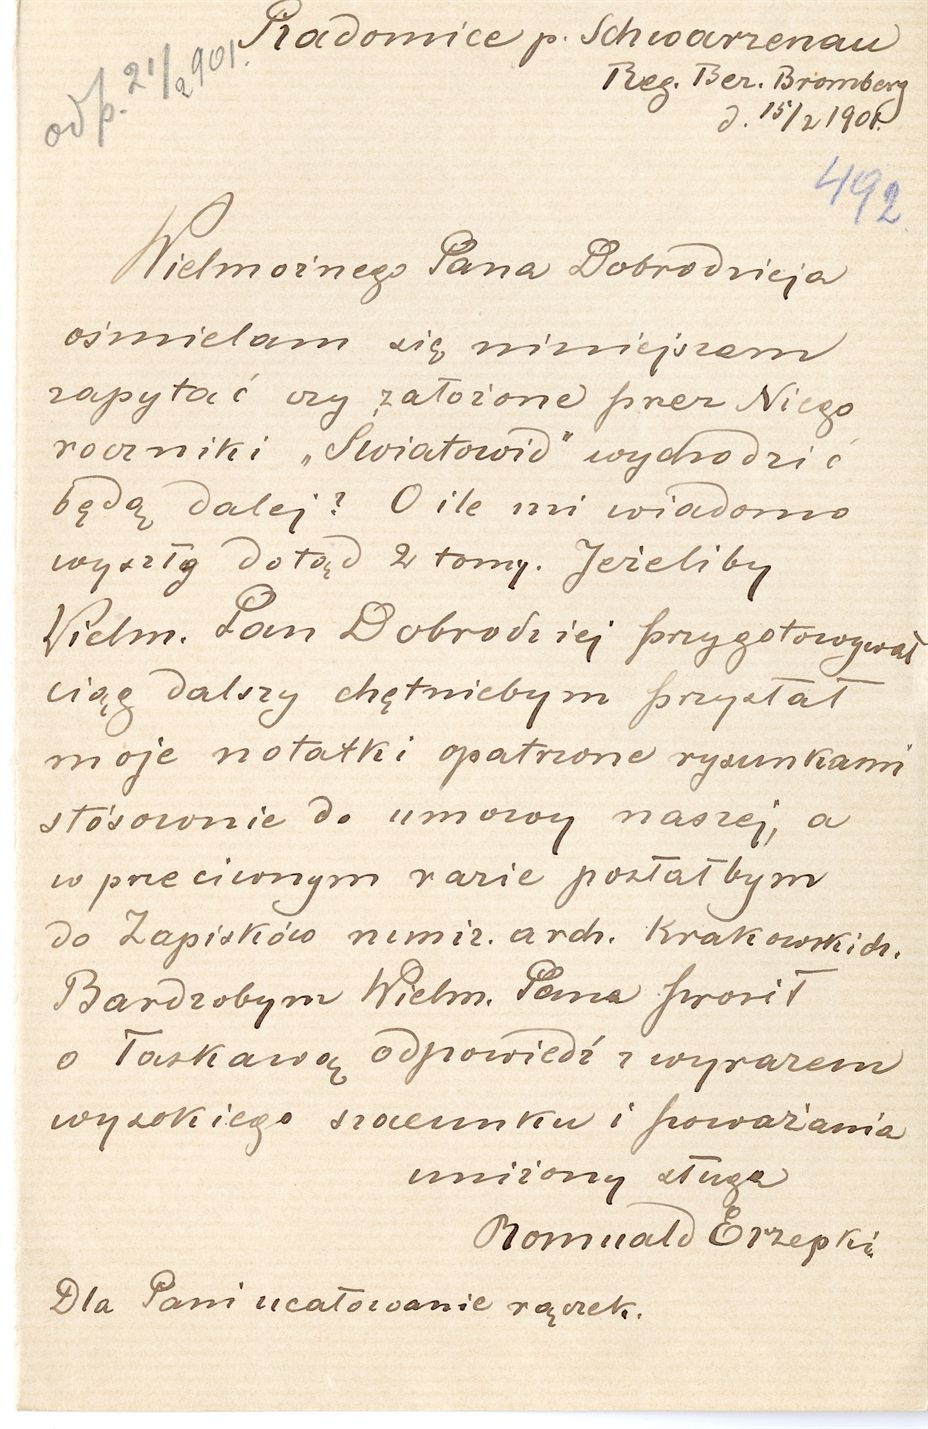 Radomice p. Schwarzenau
odp. 21/2 901.
Reg. Bez. Bromberg
d. 15/2 1901.
492
Wielmożnego Pana Dobrodzieja
ośmielam się niniejszem
zapytać czy założone przez Niego
roczniki „Swiatowid" wychodzić
będą dalej? O ile mi wiadomo
wyszły dotąd 2 tomy. Jeżeliby
Wielm. Pan Dobrodziej przygotowywał
ciąg dalszy chętniebym przysłał
moje notatki opatrzone rysunkami
stósownie do umowy naszej, a
w przeciwnym razie posłałbym
do Zapisków numiz. arch. Krakowskich.
Bardzobym Wielm. Pana prosił
o łaskawą odpowiedź z wyrazem
wysokiego szacunku i poważania
uniżony sługa
Romuald Erzepki
Dla Pani ucałowanie rączek.